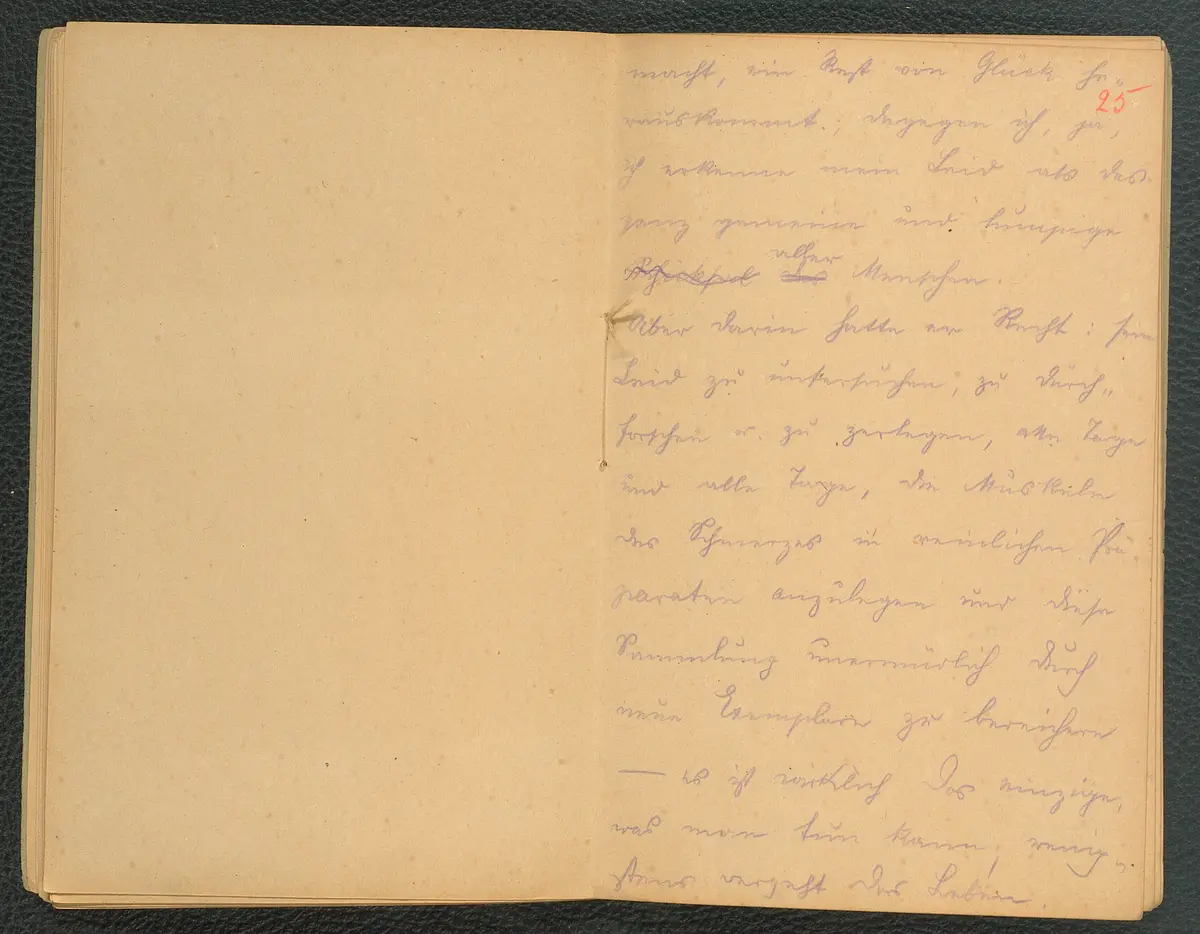 macht, ein Rest von Glück he„
25
rauskommt.; dagegen ich, ja,
ich erkenne mein Leid als das
ganz gemeine und lumpige
aller
Schicksal des Menschen.
Aber darin hatte er Recht: sein
Leid zu untersuchen, zu durch„
forschen u. zu zerlegen, alle Tage
und alle Tage, die Muskeln
des Schmerzes in reinlichen Prä„
paraten anzulegen und diese
Sammlung unermüdlich durch
neue Exemplare zu bereichern
— es ist wirklich das einzige,
was man tun kann; wenig„
stens vergeht das Leben.